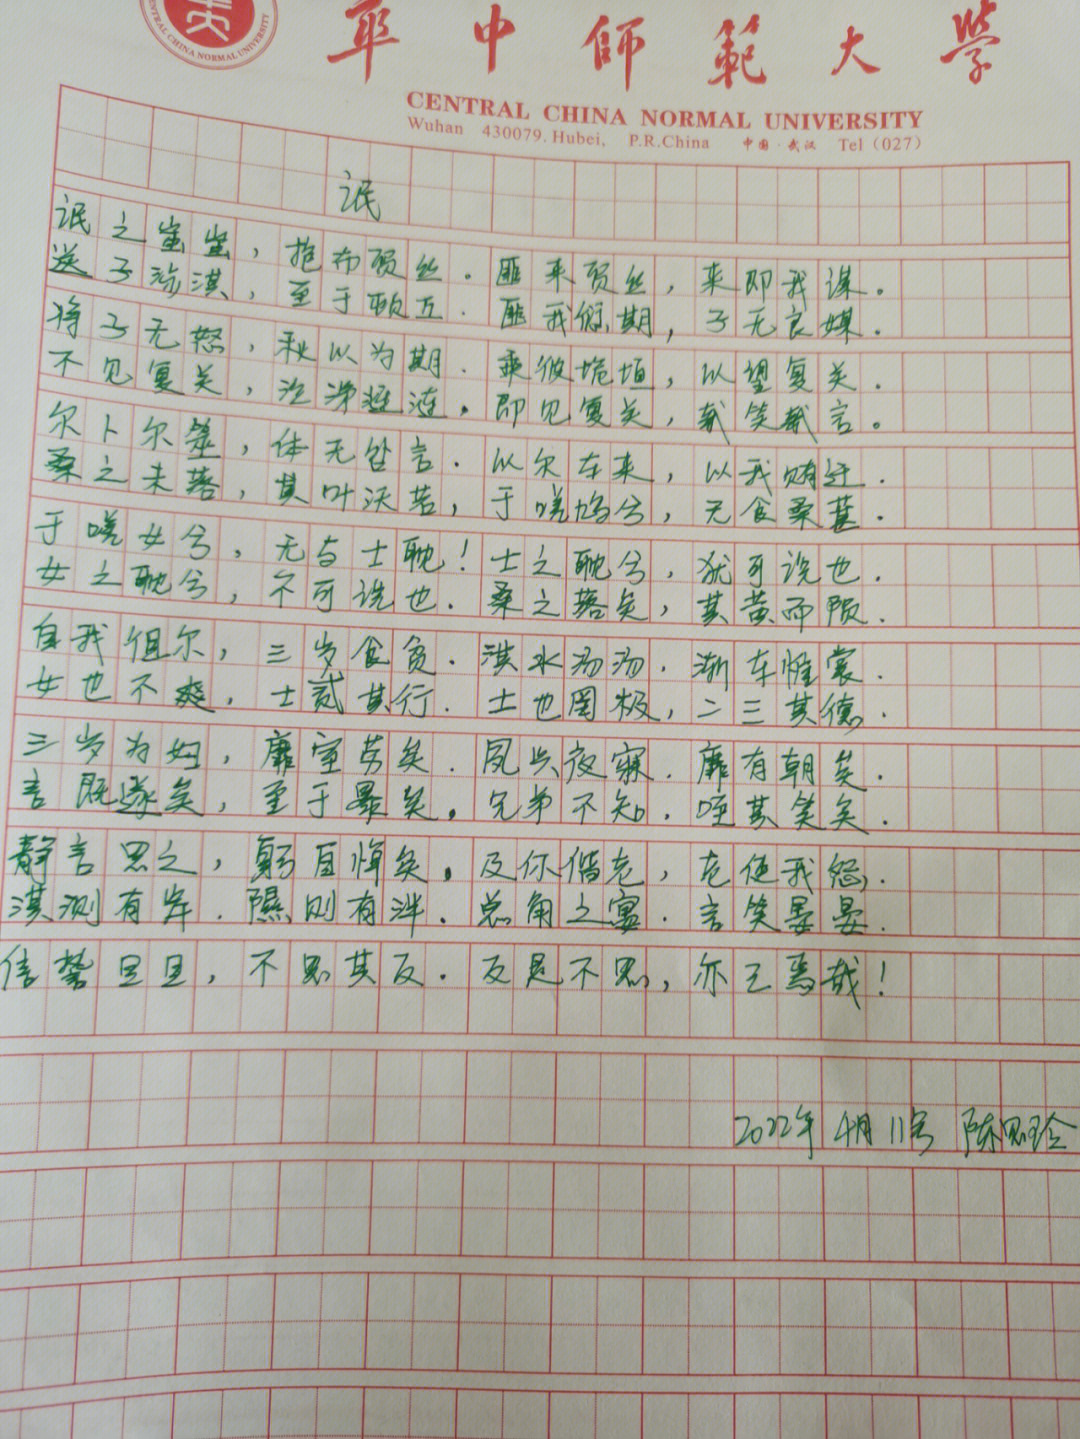 CENTRAL CHINA NORMAL UNIVERSITY
華中師範大學
CENTRAL CHINA NORMAL UNIVERSITY
Wuhan 430079. Hubei, P.R.China 中国·武汉 Tel (027)
氓
氓之蚩蚩，抱布贸丝.匪来贸丝，来即我谋。
送子涉淇，至于顿丘.匪我愆期，子无良媒.
将子无怒，秋以为期.乘彼垝垣，以望复关.
不见复关，泣涕涟涟。即见复关，载笑载言。
尔卜尔筮，体无咎言.以尔车来，以我贿迁.
桑之未落，其叶沃若，于嗟鸠兮，无食桑葚.
于嗟女兮，无与士耽！士之耽兮，犹可说也.
女之耽兮，不可说也.桑之落矣，其黄而陨.
自我徂尔，三岁食贫.淇水汤汤.渐车帷裳.
女也不爽，士贰其行.士也罔极，二三其德.
三岁为妇，靡室劳矣.夙兴夜寐.靡有朝矣.
言既遂矣，至于暴矣。兄弟不知.咥其笑矣.
静言思之，躬自悼矣。及你偕老，老使我怨.
淇测有岸.隰则有泮.总角之宴.言笑晏晏.
信誓旦旦，不思其反.反是不思，亦已焉哉！
2022年4月11号 陈思玲